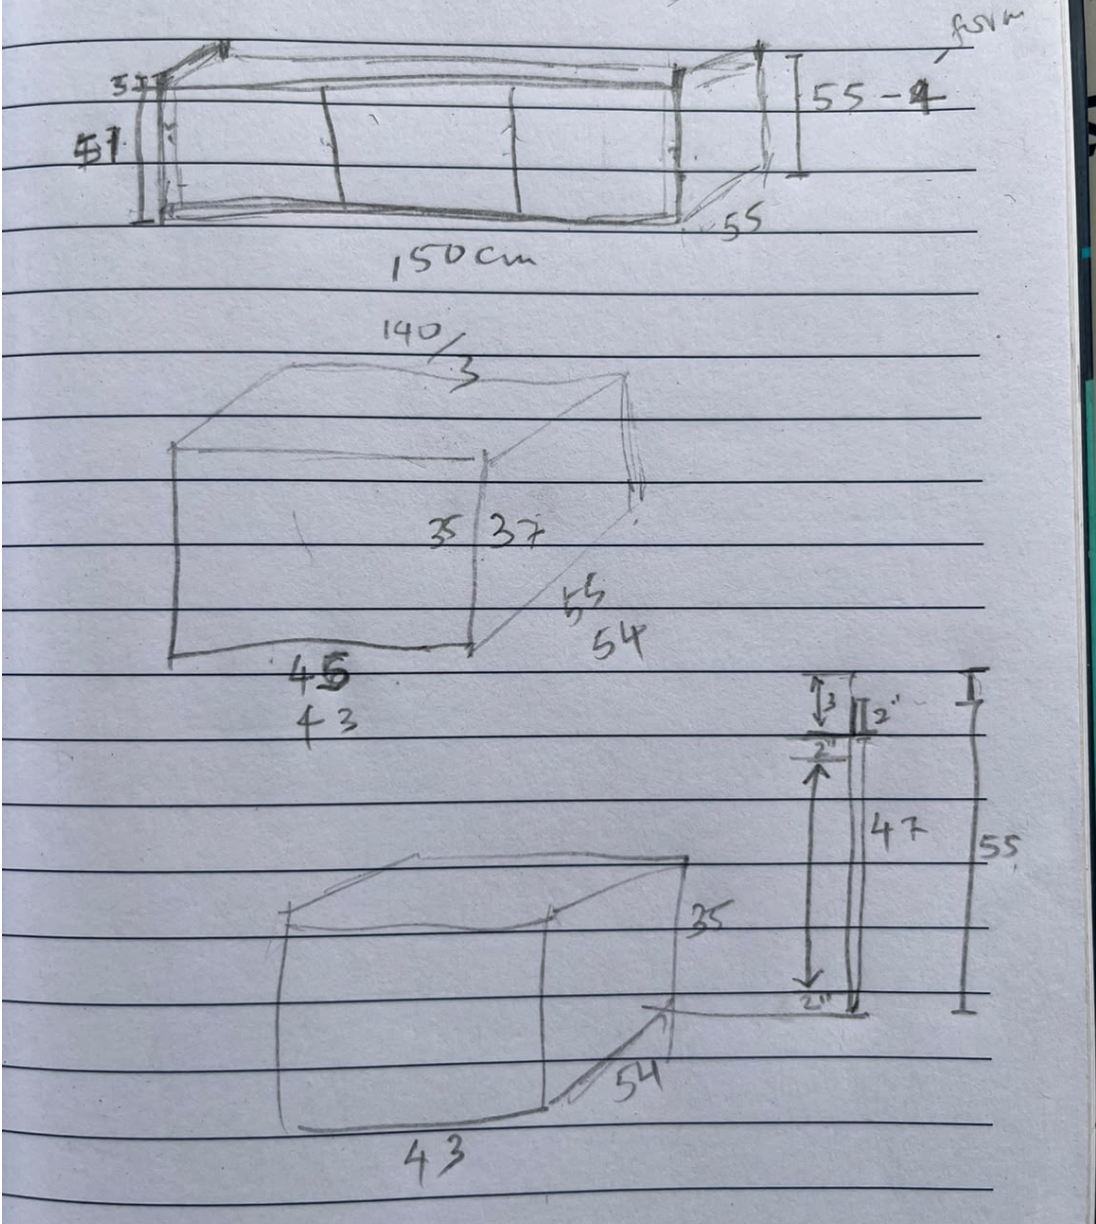 55-4
55
150cm
140/3
35 37
55
54
45
43
3 2"
2"
47
55
35
2"
54
43